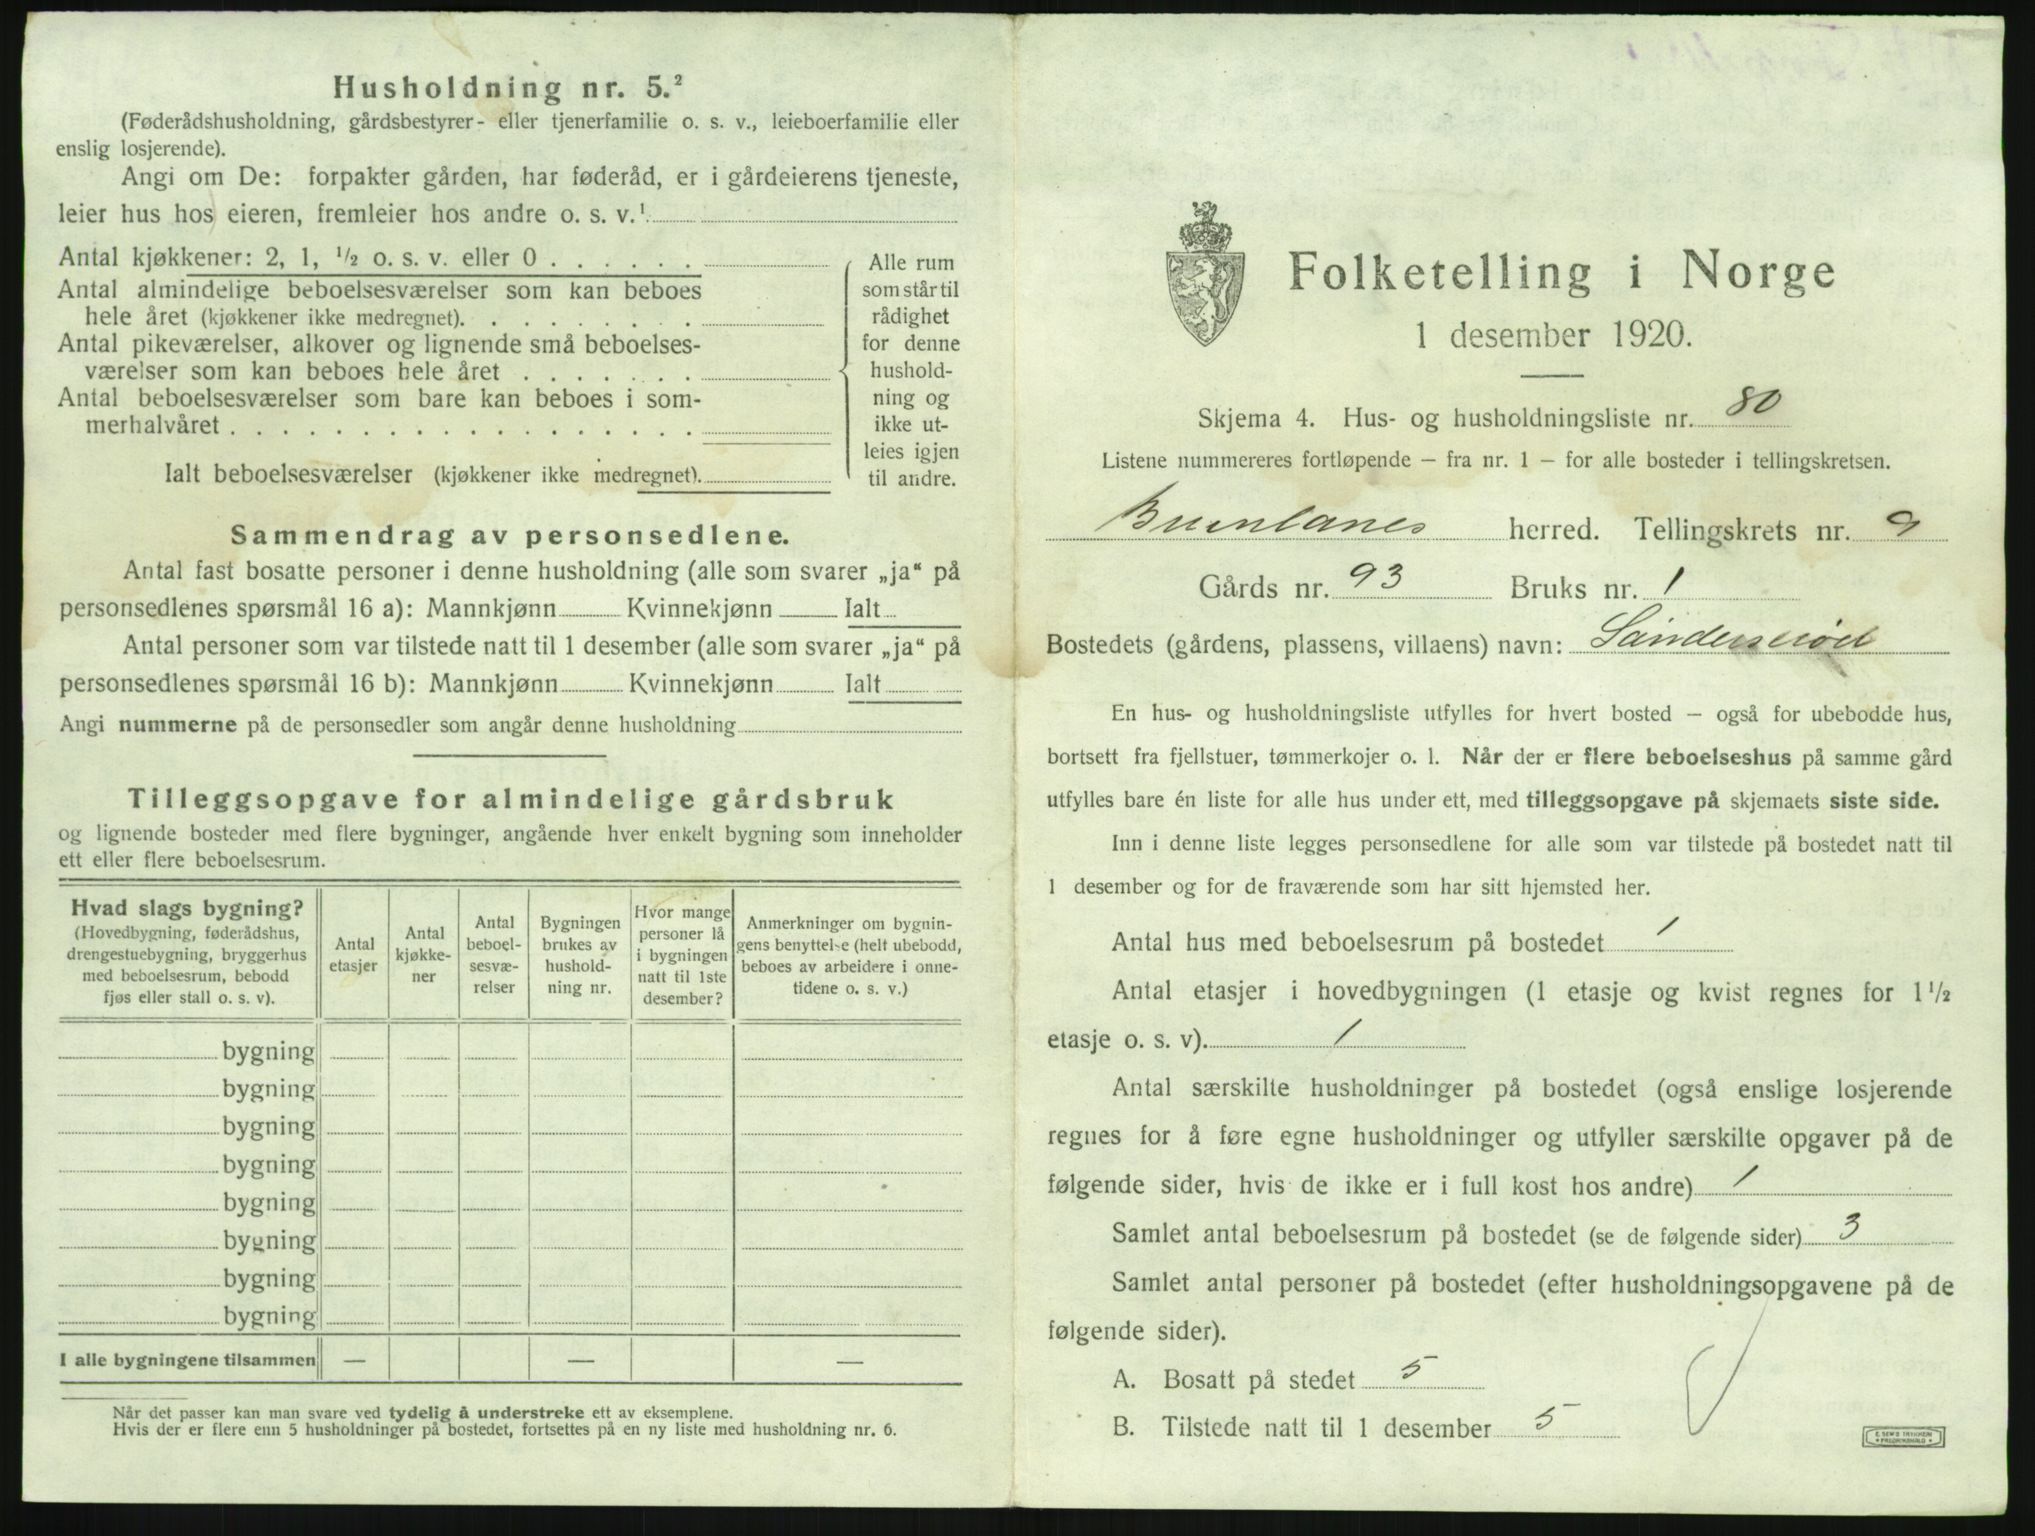 Husholdning nr. 5.²
(Føderådshusholdning, gårdsbestyrer- eller tjenerfamilie o. s. v., leieboerfamilie eller
enslig losjerende).
Angi om De: forpakter gården, har føderåd, er i gårdeierens tjeneste,
leier hus hos eieren, fremleier hos andre o. s. v.¹
Antal kjøkkener: 2, 1, ½ o. s. v. eller 0 . . . . . .
Antal almindelige beboelsesværelser som kan beboes
hele året (kjøkkener ikke medregnet). . . . . . . . .
Antal pikeværelser, alkover og lignende små beboelses-
værelser som kan beboes hele året . . . . . . .
Antal beboelsesværelser som bare kan beboes i som-
merhalvåret . . . . . . . . . . . . . . . . . .
Ialt beboelsesværelser (kjøkkener ikke medregnet).
Alle rum
som står til
rådighet
for denne
hushold-
ning og
ikke ut-
leies igjen
til andre.
Sammendrag av personsedlene.
Antal fast bosatte personer i denne husholdning (alle som svarer „ja“ på
personsedlenes spørsmål 16 a): Mannkjønn Kvinnekjønn Ialt
Antal personer som var tilstede natt til 1 desember (alle som svarer „ja“ på
personsedlenes spørsmål 16 b): Mannkjønn Kvinnekjønn Ialt
Angi nummerne på de personsedler som angår denne husholdning
Tilleggsopgave for almindelige gårdsbruk
og lignende bosteder med flere bygninger, angående hver enkelt bygning som inneholder
ett eller flere beboelsesrum.
Hvad slags bygning?
(Hovedbygning, føderådshus,
drengestuebygning, bryggerhus
med beboelsesrum, bebodd
fjøs eller stall o. s. v).
Antal
etasjer
Antal
kjøkke-
ner
Antal
beboel-
sesvæ-
relser
Bygningen
brukes av
hushold-
ning nr.
Hvor mange
personer lå
i bygningen
natt til 1ste
desember?
Anmerkninger om bygnin-
gens benyttelse (helt ubebodd,
beboes av arbeidere i onne-
tidene o. s. v.)
bygning
bygning
bygning
bygning
bygning
bygning
bygning
bygning
I alle bygningene tilsammen — — —
Når det passer kan man svare ved tydelig å understreke ett av eksemplene.
Hvis der er flere enn 5 husholdninger på bostedet, fortsettes på en ny liste med husholdning nr. 6.
Folketelling i Norge
1 desember 1920.
Skjema 4. Hus- og husholdningsliste nr. 80
Listene nummereres fortløpende – fra nr. 1 – for alle bosteder i tellingskretsen.
Brunlanes herred. Tellingskrets nr. 9
Gårds nr. 93 Bruks nr. 1
Bostedets (gårdens, plassens, villaens) navn: Sanderserød
En hus- og husholdningsliste utfylles for hvert bosted – også for ubebodde hus,
bortsett fra fjellstuer, tømmerkojer o. l. Når der er flere beboelseshus på samme gård
utfylles bare én liste for alle hus under ett, med tilleggsopgave på skjemaets siste side.
Inn i denne liste legges personsedlene for alle som var tilstede på bostedet natt til
1 desember og for de fraværende som har sitt hjemsted her.
Antal hus med beboelsesrum på bostedet 1
Antal etasjer i hovedbygningen (1 etasje og kvist regnes for 1½
etasje o. s. v). 1
Antal særskilte husholdninger på bostedet (også enslige losjerende
regnes for å føre egne husholdninger og utfyller særskilte opgaver på de
følgende sider, hvis de ikke er i full kost hos andre) 1
Samlet antal beboelsesrum på bostedet (se de følgende sider) 3
Samlet antal personer på bostedet (efter husholdningsopgavene på de
følgende sider).
A. Bosatt på stedet 5
B. Tilstede natt til 1 desember 5
E. SEM'S TRYKKERI
FREDRIKSHALD